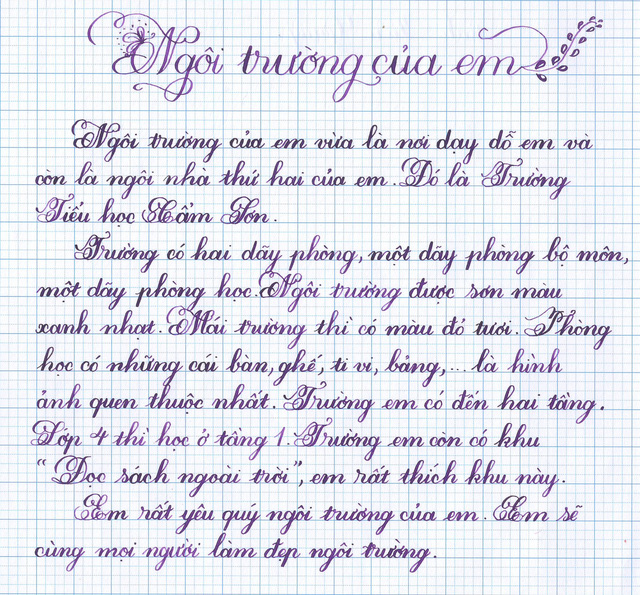 Ngôi trường của em
Ngôi trường của em vừa là nơi dạy dỗ em và
còn là ngôi nhà thứ hai của em. Đó là Trường
Tiểu học Cẩm Sơn.
Trường có hai dãy phòng, một dãy phòng bộ môn,
một dãy phòng học. Ngôi trường được sơn màu
xanh nhạt. Mái trường thì có màu đỏ tươi. Phòng
học có những cái bàn, ghế, ti vi, bảng,... là hình
ảnh quen thuộc nhất. Trường em có đến hai tầng.
Lớp 4 thì học ở tầng 1. Trường em còn có khu
“Đọc sách ngoài trời”, em rất thích khu này.
Em rất yêu quý ngôi trường của em. Em sẽ
cùng mọi người làm đẹp ngôi trường.